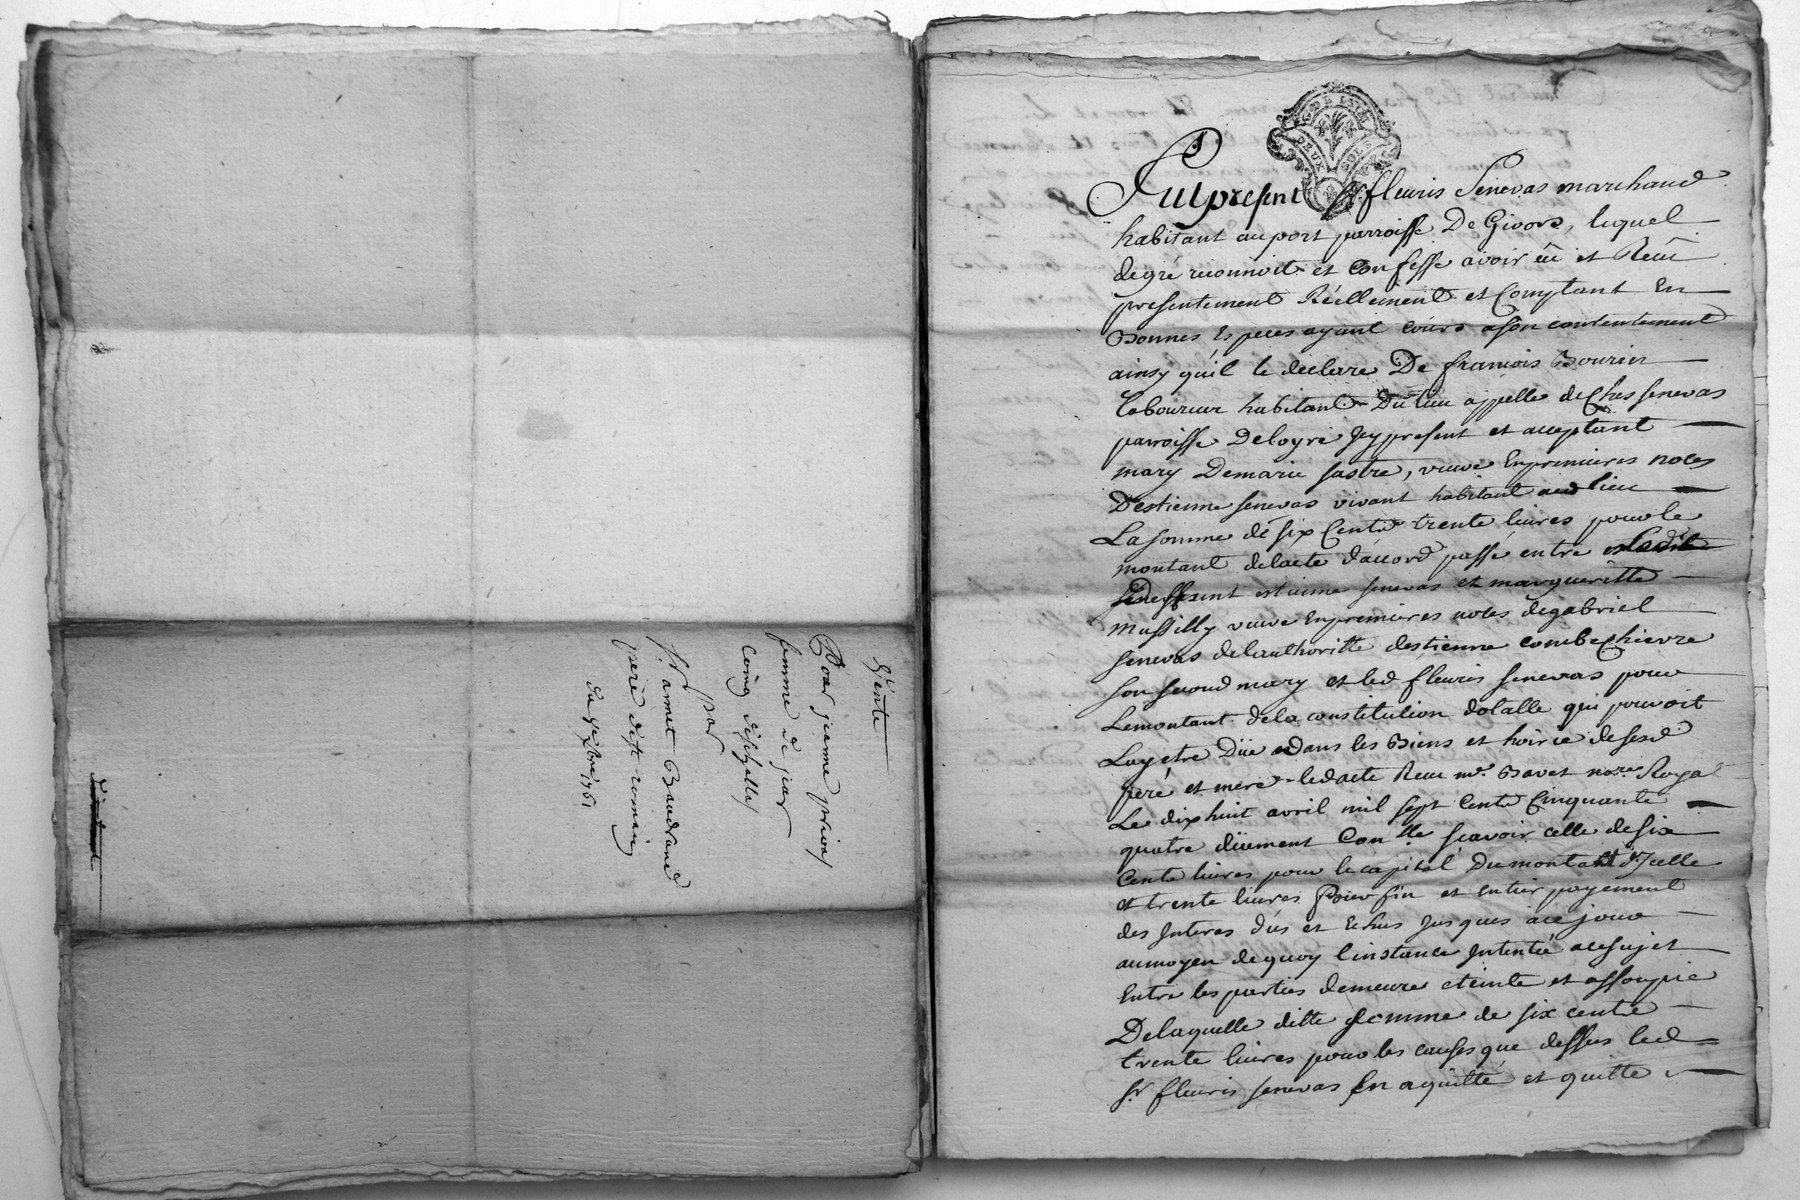 Vente
Pour jeanne prieur
femme de jean
par
Sr. aimet Baudrand
père de st romain
du 8e xbre 1761
G. DE LYON
DEUX SOLS
Fut present Sr. fleuris Senevas marchand
habitant au port parroisse De Givors, lequel
de gré reconnoit et Confesse avoir êû et Reçû
presentement Réellement et Comptant En
Bonnes Especes ayant cours a son contentement
ainsy qu'il le declare De francois Bourin
laboureur habitant Du lieu appellé de Chas senevas
parroisse De loyre Jcy present et acceptant
mary De marie sastre, veuve En premieres noces
D'estienne senevas vivant habitant aud lieu
La somme de six Cents trente livres pour le
montant de lacte d'accord passé entre ledit
deffunt estienne senevas et margueritte
Massilly veuve En premieres noces de gabriel
senevas de lauthoritté destienne combe Chievre
son second mary et led fleuris senevas pour
Le montant de la constitution dotalle qui pouvoit
Luy etre Düe dans les Biens et hoirie de sesd
père et mere ledacte Reçu me. Bavet nore. Royal
Le dix huit avril mil sept Cents Cinquante
quatre düement Conllé. scavoir celle de six
Cents livres pour le capital Du montant d'Jcelle
et trente livres Pour fin et entier payement
des Jnterets dus et Echus Jusques a ce jour
au moyen de quoy linstance Jntentée a ce sujet
Entre les parties demeure eteinte et assoupie
De laquelle ditte somme de six cents
trente livres pour les causes que dessus led
Sr. fleuris senevas En a quitté et quitte